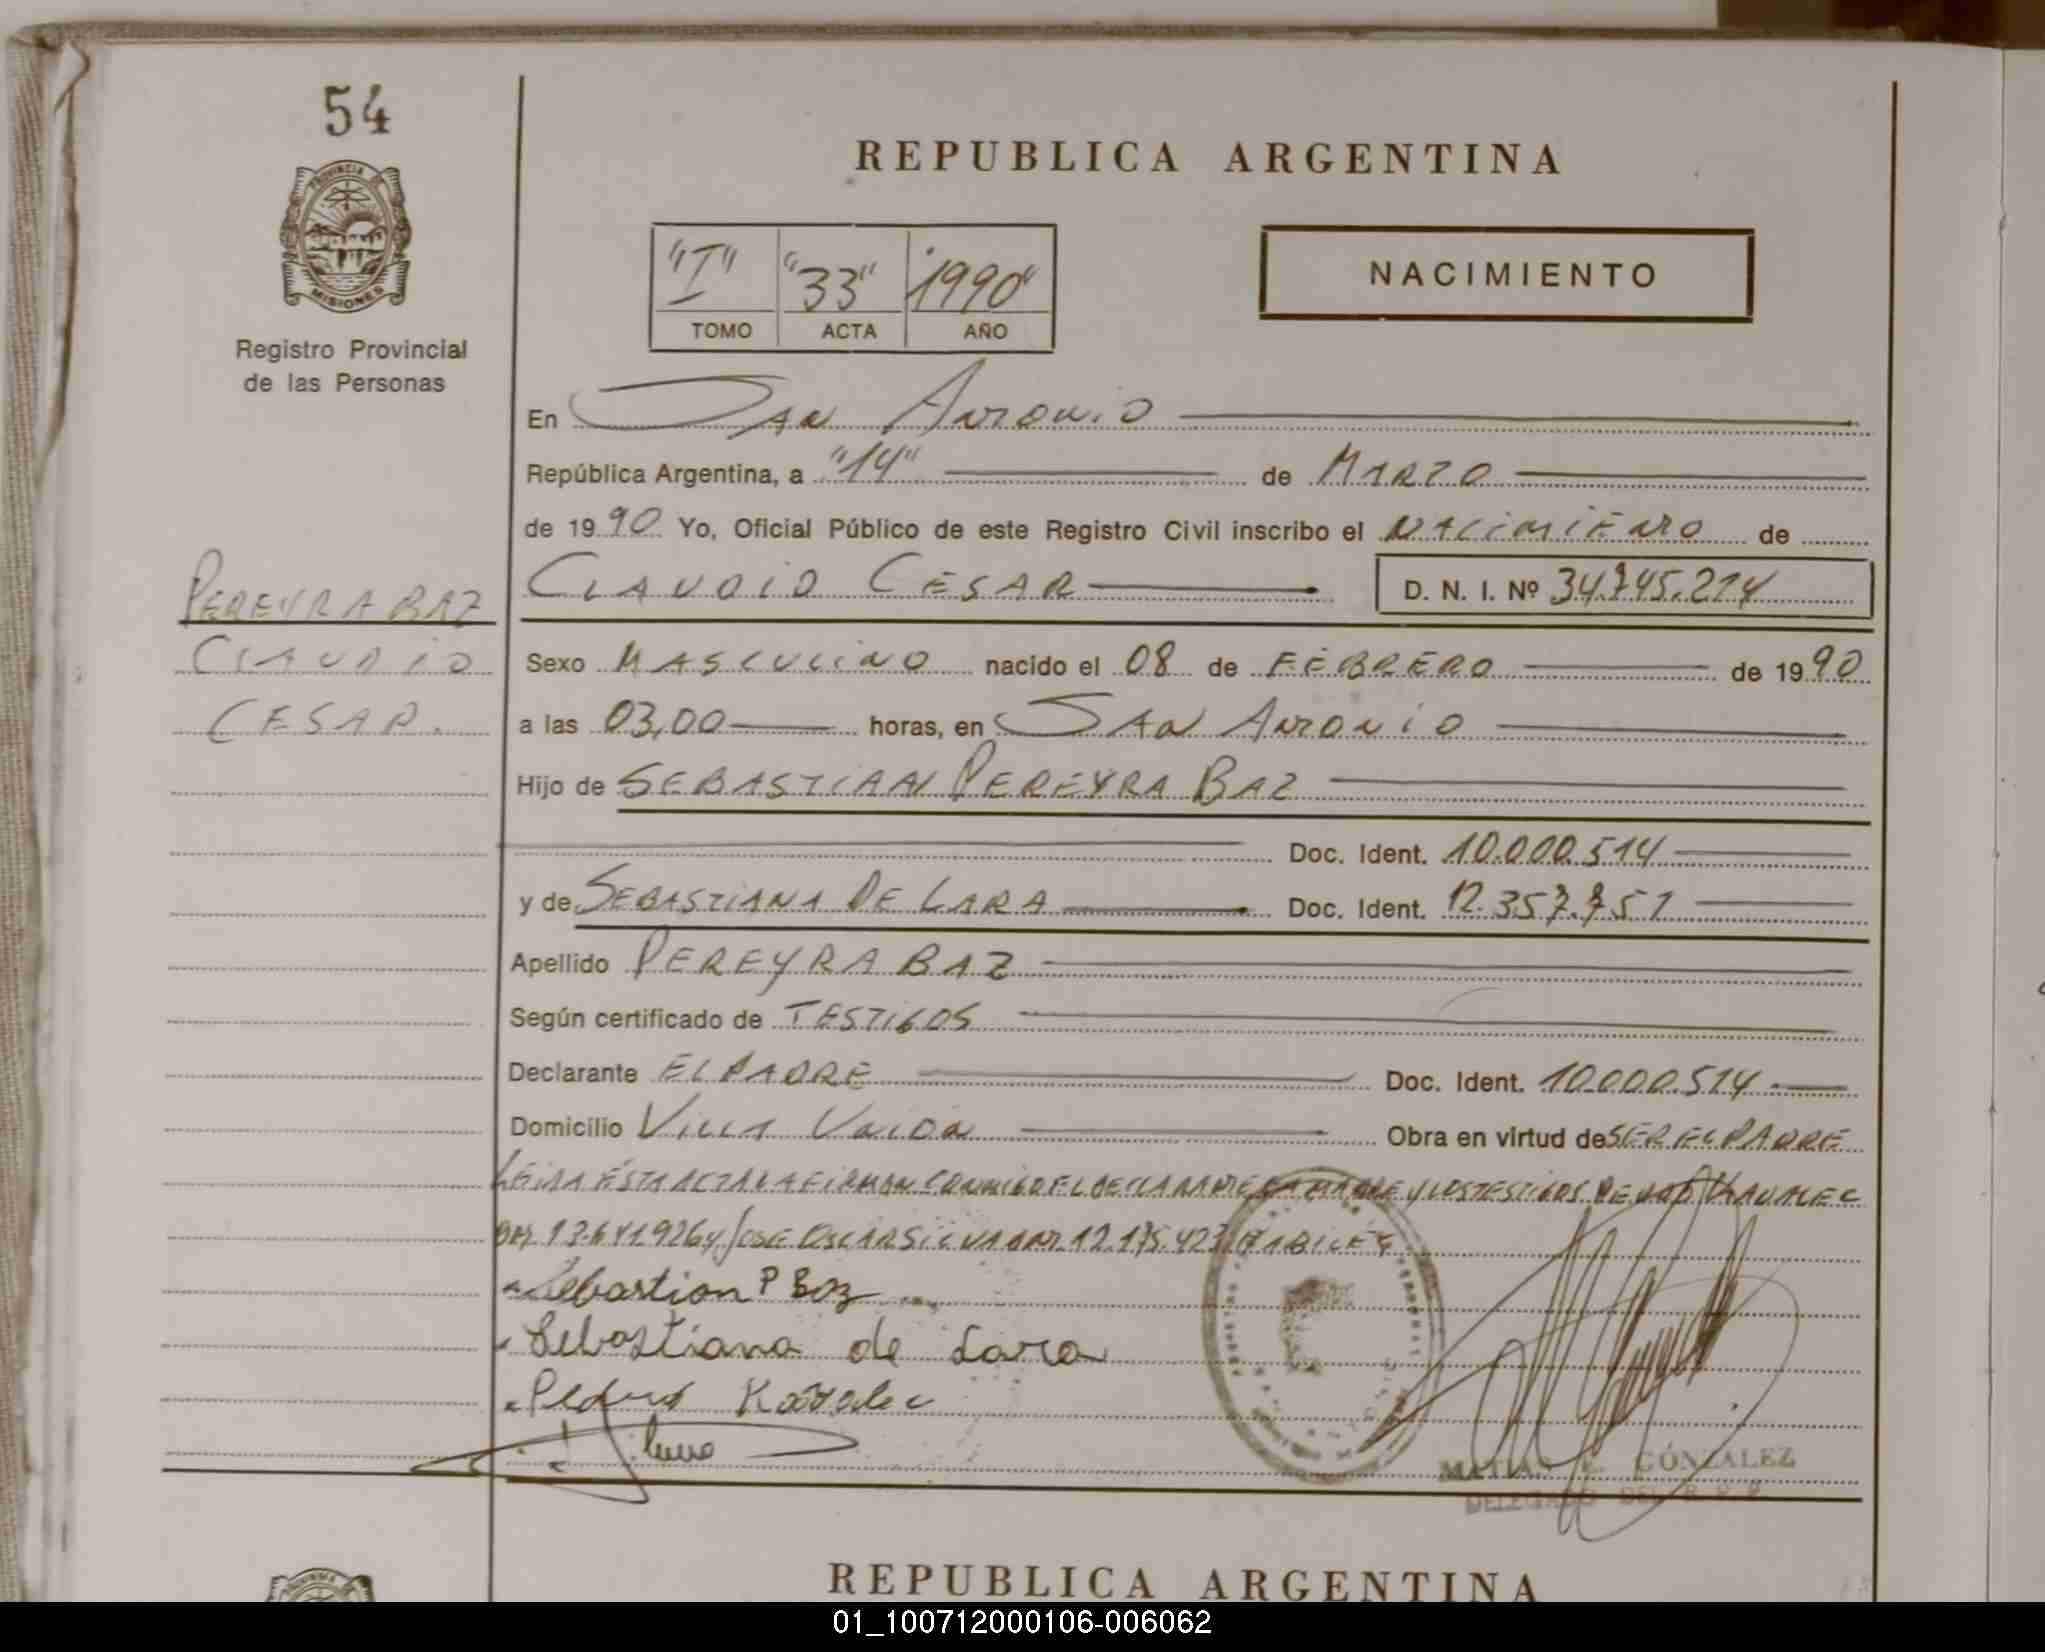 54
REPUBLICA ARGENTINA
PROVINCIA DE
MISIONES
Registro Provincial
de las Personas
"I" "33" "1990"
TOMO ACTA AÑO
NACIMIENTO
En San Antonio
República Argentina, a "14" de Marzo
de 1990 Yo, Oficial Público de este Registro Civil inscribo el Nacimiento de
PEREYRA BAZ
CLAUDIO
CESAR.
CLAUDIO CESAR D. N. I. Nº 34.745.214
Sexo MASCULINO nacido el 08 de FEBRERO de 1990
a las 03,00 horas, en San Antonio
Hijo de SEBASTIAN PEREYRA BAZ
Doc. Ident. 10.000.514
y de SEBASTIANA DE LARA Doc. Ident. 12.357.751
Apellido PEREYRA BAZ
Según certificado de TESTIGOS
Declarante EL PADRE Doc. Ident. 10.000.514
Domicilio Villa Unida Obra en virtud de SER EL PADRE
LEIDA ÉSTA ACTA LA FIRMAN CONMIGO EL DECLARANTE LA MADRE Y LOS TESTIGOS PEDRO
JOSE OSCAR SILVA 12.175.423 HABILES
Sebastian P Baz
Sebastiana de Lara
Pedro
Silva
MATIAS E. GONZALEZ
DELEGADO DEL R. P. P.
REPUBLICA ARGENTINA
01_100712000106-006062